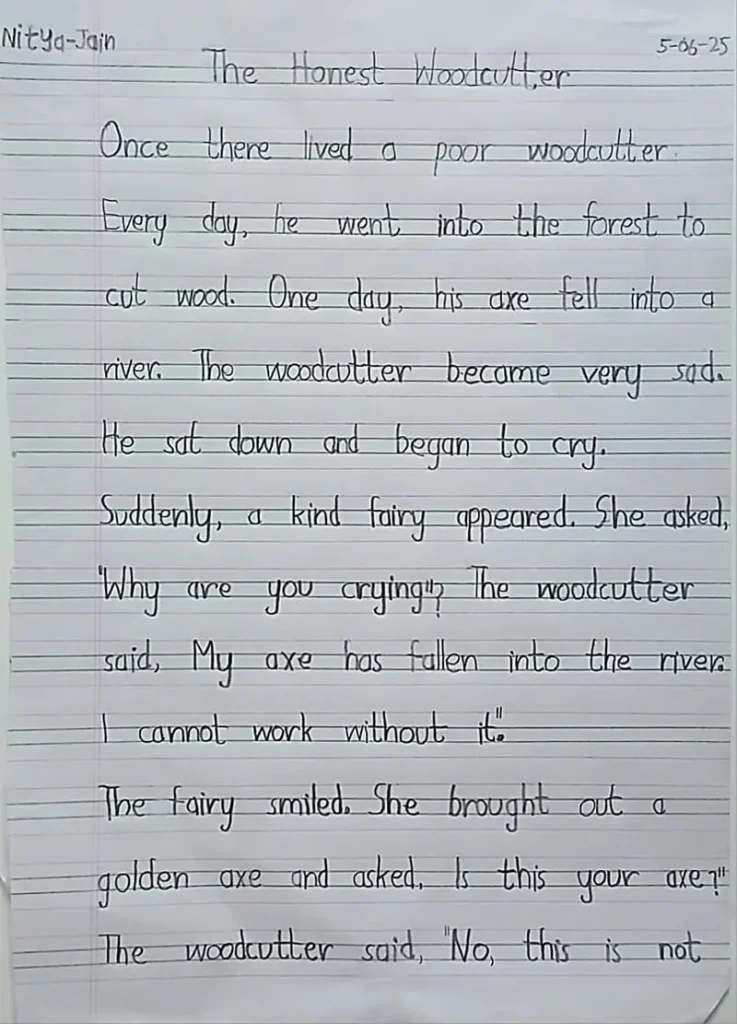 Nitya-Jain
5-06-25
The Honest Woodcutter
Once there lived a poor woodcutter.
Every day, he went into the forest to
cut wood. One day, his axe fell into a
river. The woodcutter became very sad.
He sat down and began to cry.
Suddenly, a kind fairy appeared. She asked,
"Why are you crying"? The woodcutter
said, My axe has fallen into the river.
I cannot work without it".
The fairy smiled. She brought out a
golden axe and asked, Is this your axe?"
The woodcutter said, "No, this is not